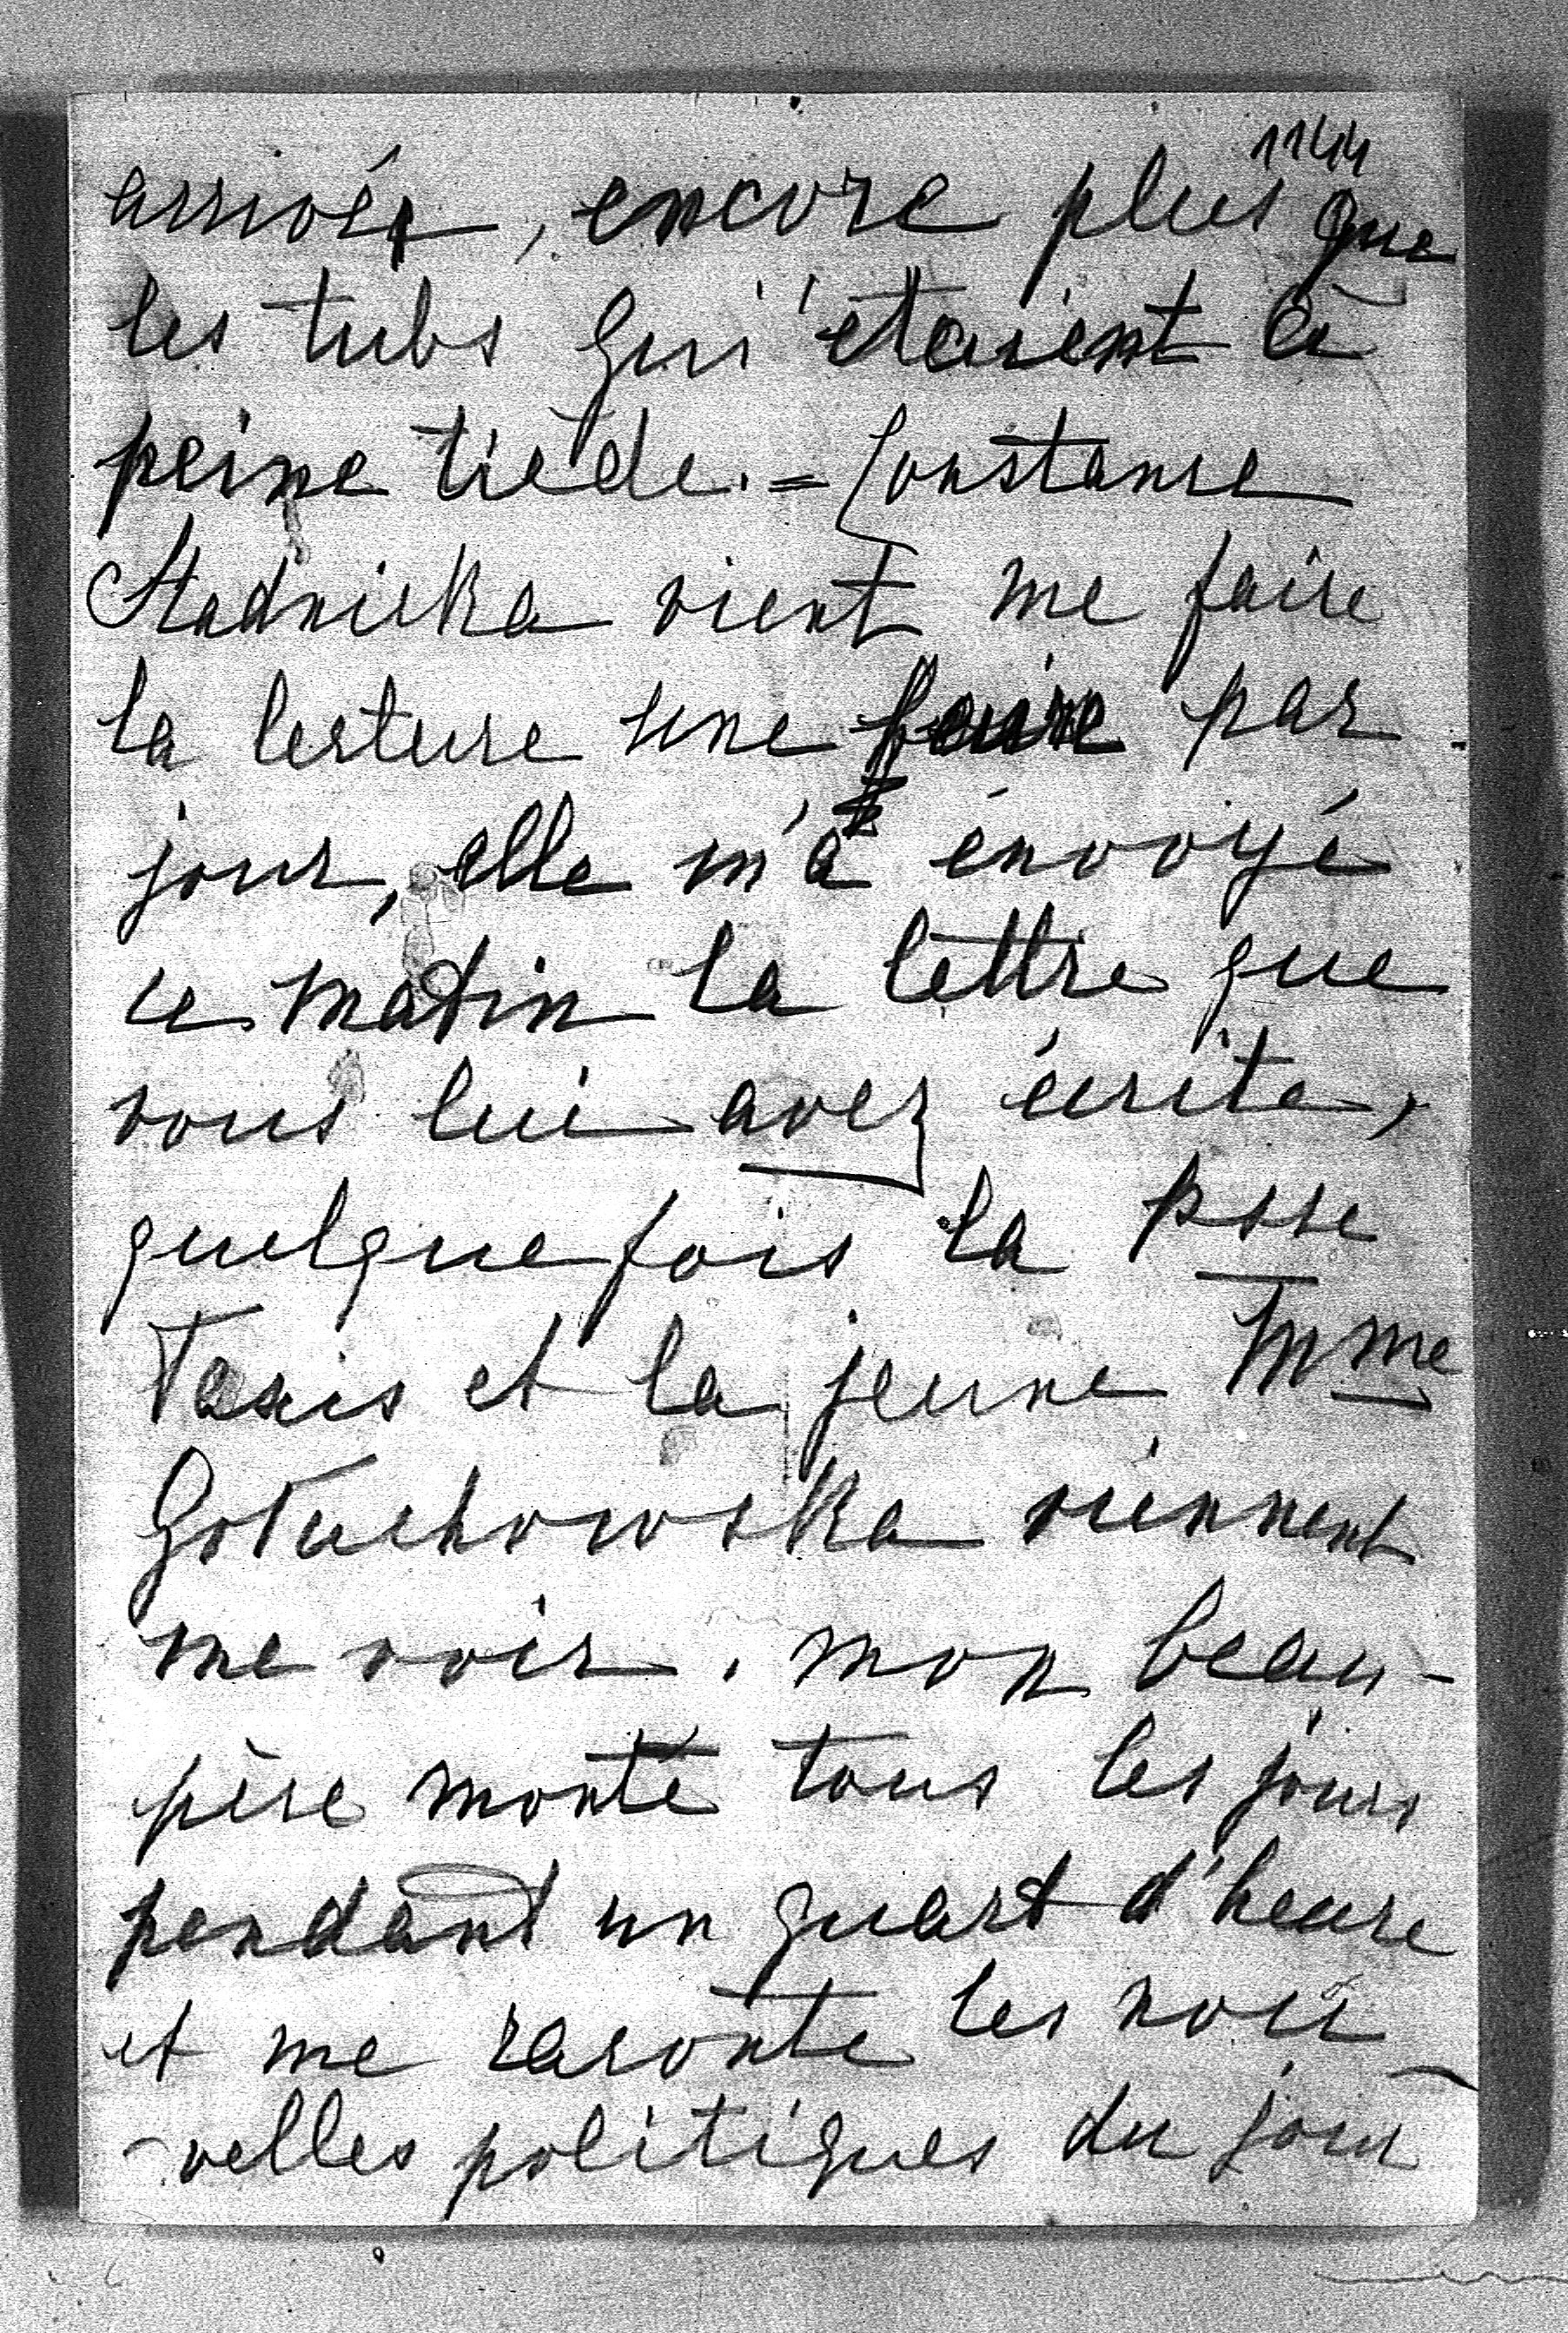 1144
arrivée, encore plus que
les tubs qui étaient à
peine tiède. = Constance
Stadnicka vient me faire
la lecture une heure par
jour, elle m'a envoyé
ce matin la lettre que
vous lui avez écrite,
quelquefois la Psse
Taxis et la jeune Mme
Gołuchowska viennent
me voir. mon beau-
père monte tous les jours
pendant un quart d'heure
et me raconte les nou-
-velles politiques du jour